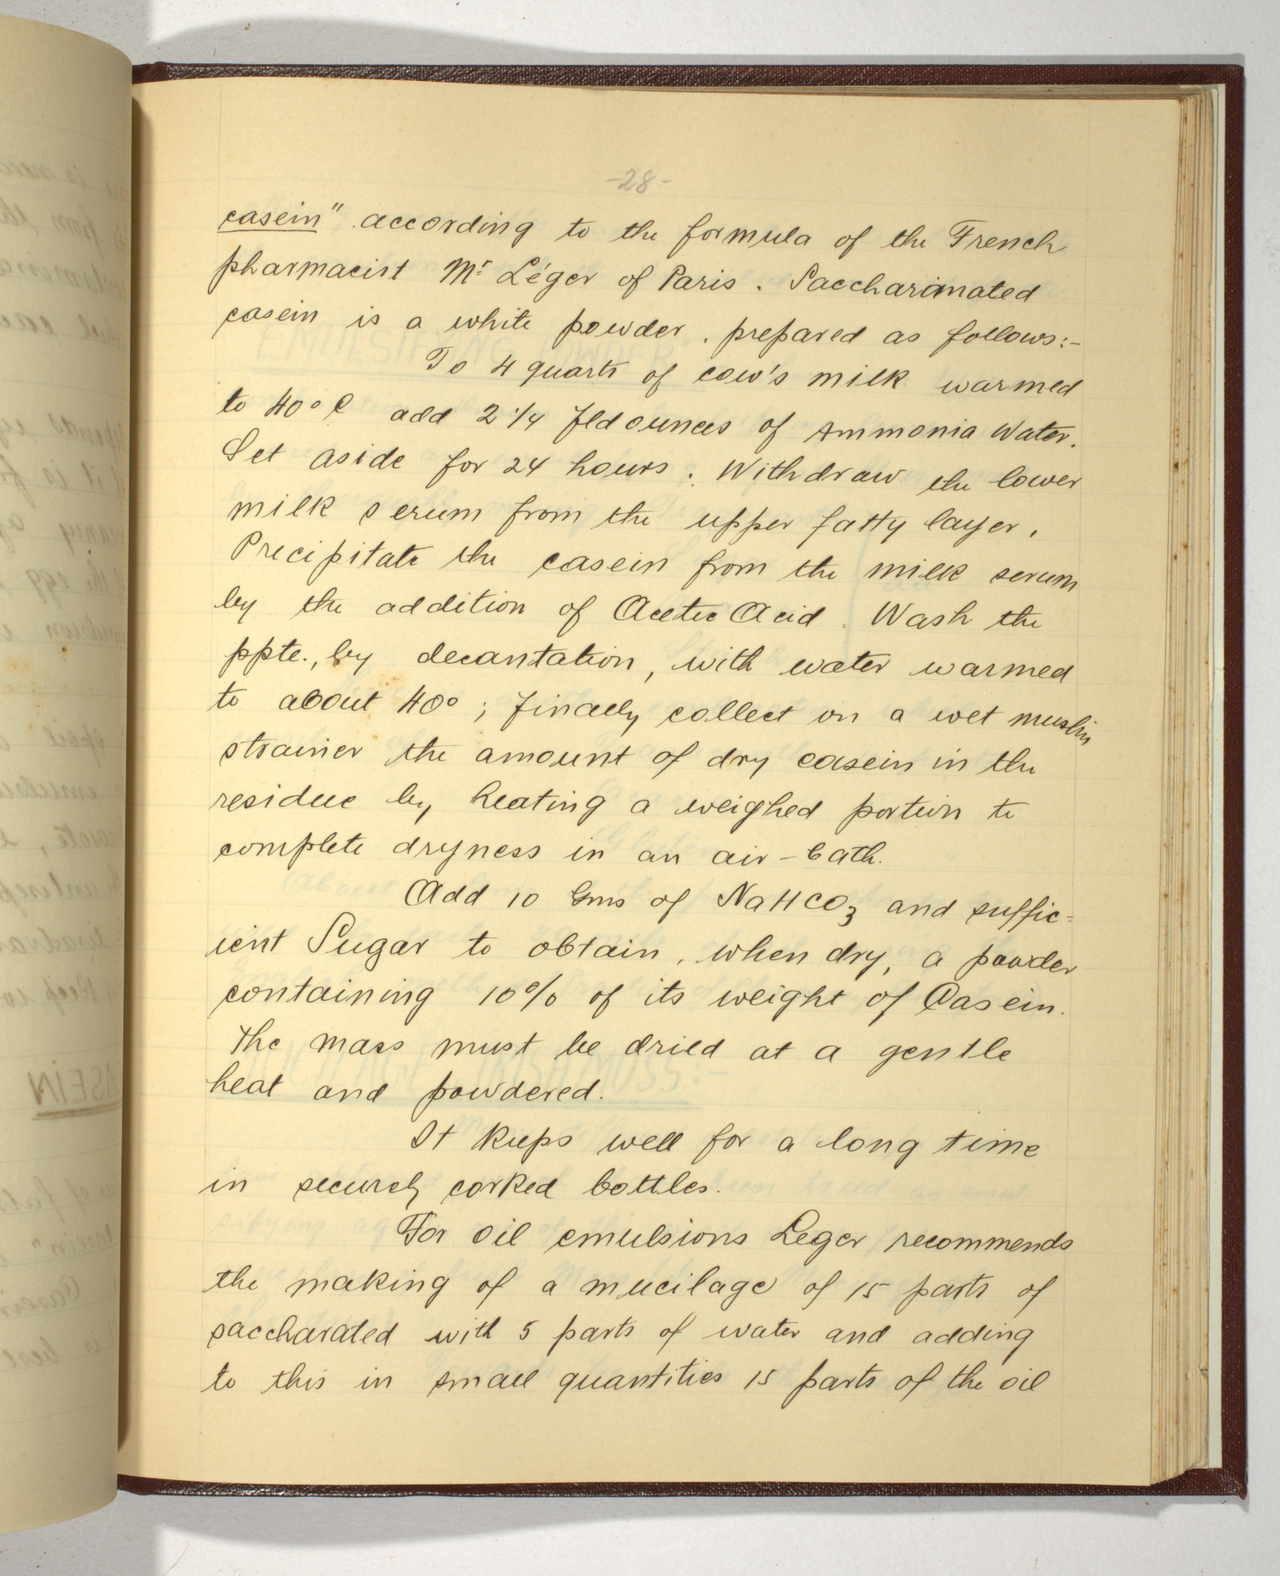 -28-
casein" according to the formula of the French
pharmacist Mr Léger of Paris. Saccharinated
casein is a white powder, prepared as follows:-
To 4 quarts of cow's milk warmed
to 40° C add 2 1/4 fld ounces of Ammonia Water.
Set aside for 24 hours. Withdraw the lower
milk serum from the upper fatty layer.
Precipitate the casein from the milk serum
by the addition of Acetic Acid. Wash the
ppte., by decantation, with water warmed
to about 40°; finally collect on a wet muslin
strainer the amount of dry casein in the
residue by heating a weighed portion to
complete dryness in an air-bath.
Add 10 Gms of NaHCO3 and suffic=
ient Sugar to obtain, when dry, a powder
containing 10% of its weight of Casein.
The mass must be dried at a gentle
heat and powdered.
It keeps well for a long time
in securely corked bottles.
For oil emulsions Leger recommends
the making of a mucilage of 15 parts of
saccharated with 5 parts of water and adding
to this in small quantities 15 parts of the oil
ASEIN